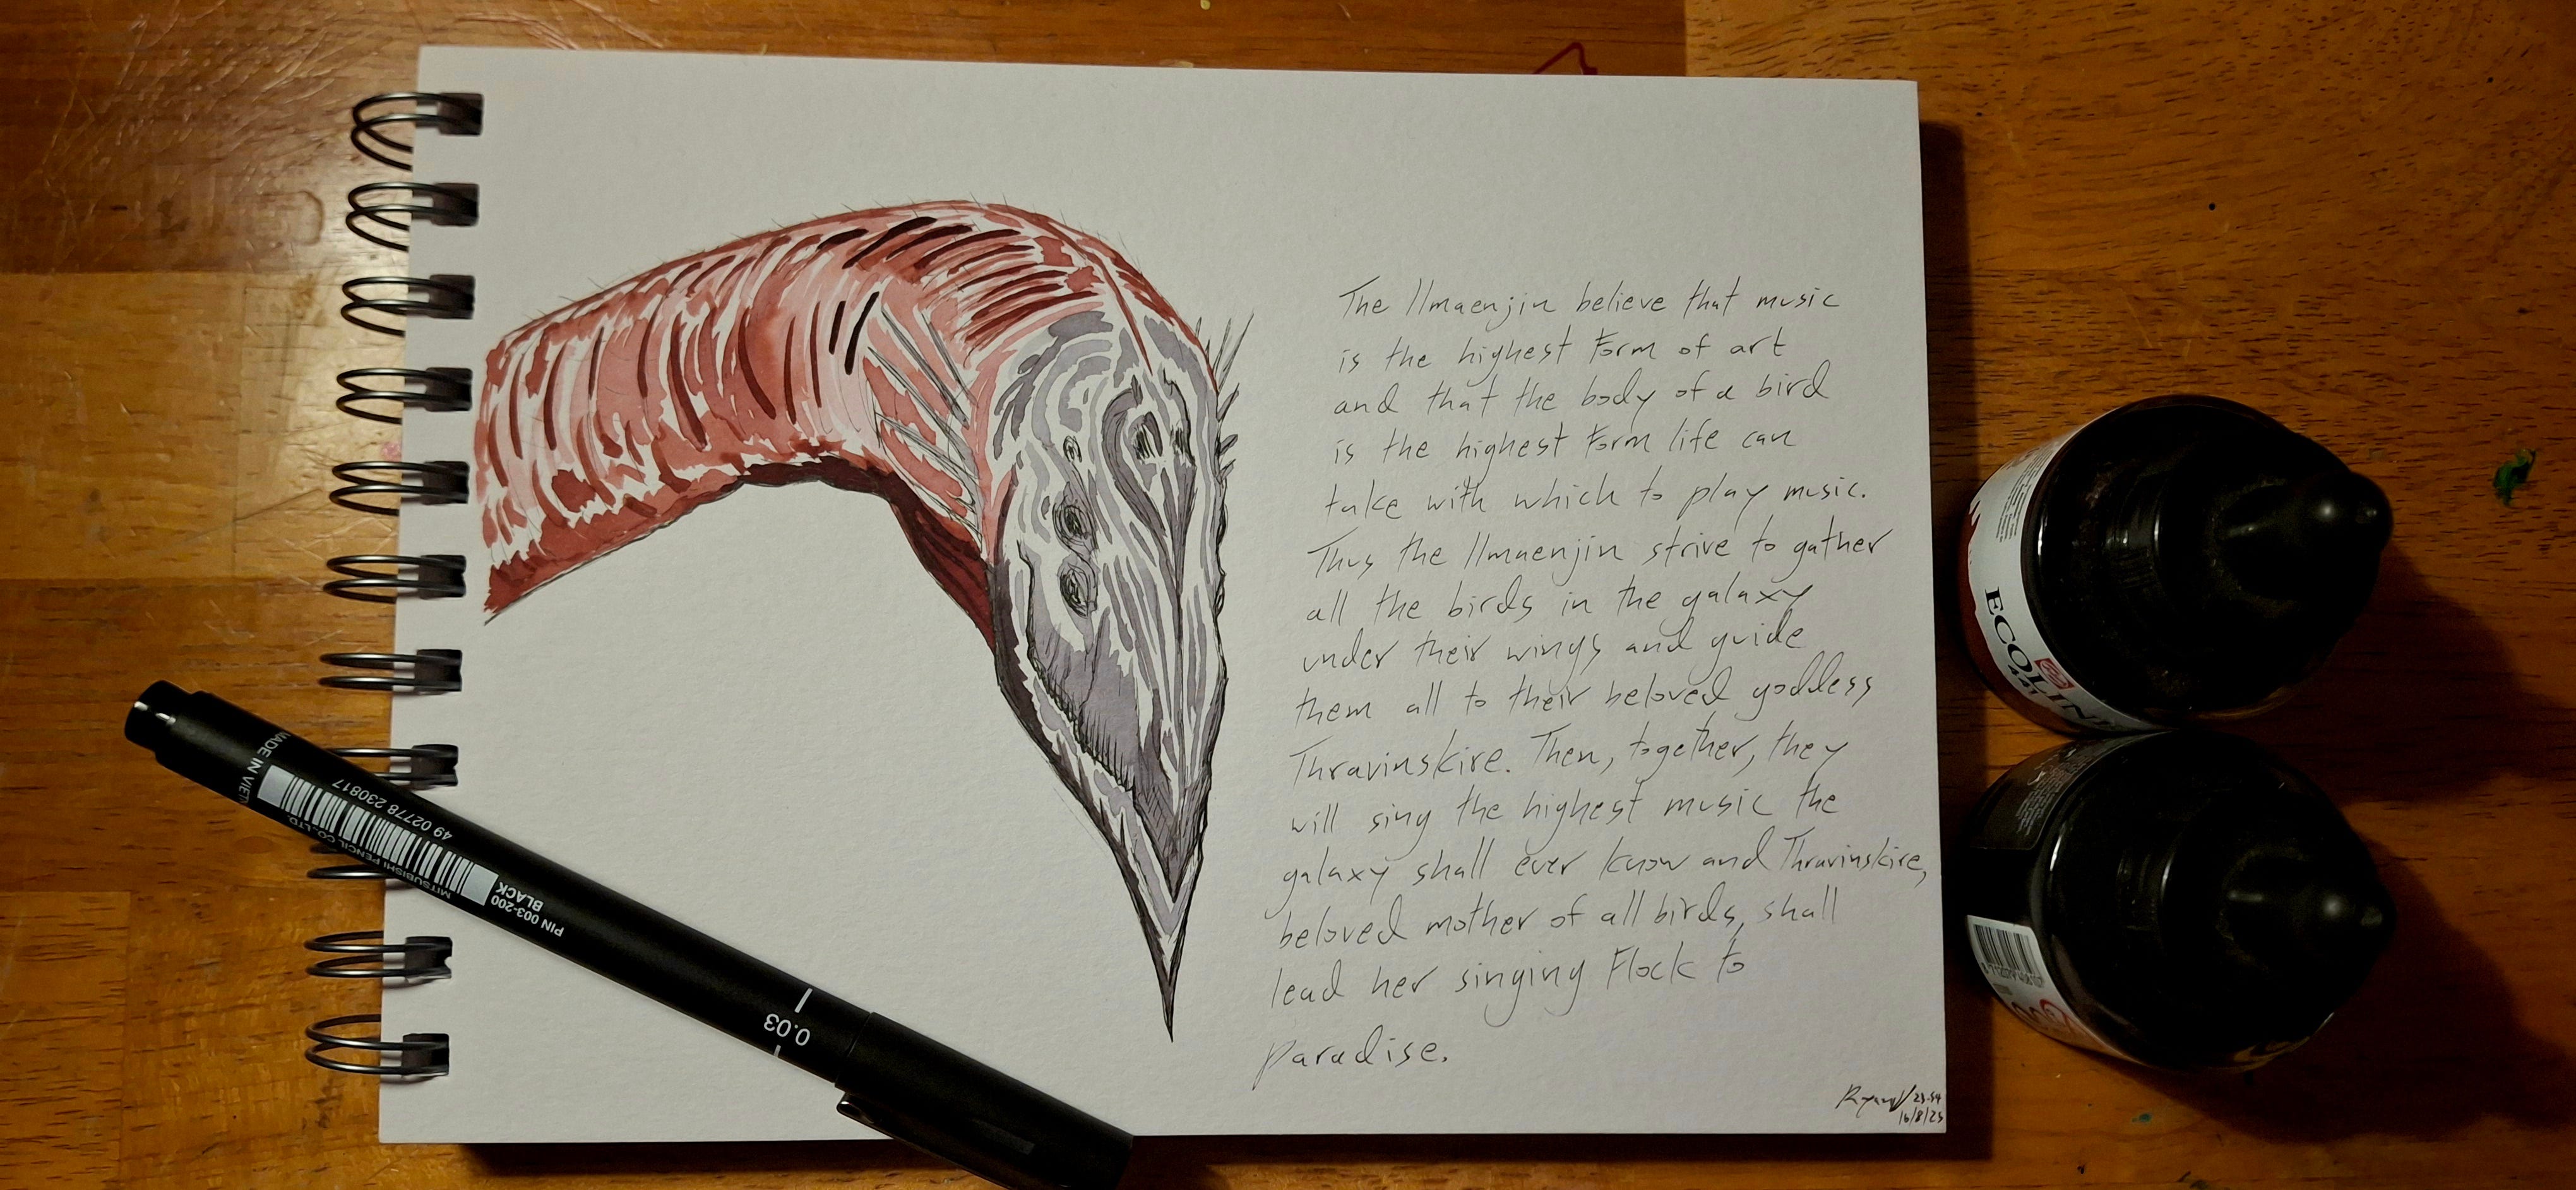 The Ilmaenjin believe that music
is the highest form of art
and that the body of a bird
is the highest form life can
take with which to play music.
Thus the Ilmaenjin strive to gather
all the birds in the galaxy
under their wings and guide
them all to their beloved goddess
Thravinskire. Then, together, they
will sing the highest music the
galaxy shall ever know and Thravinskire,
beloved mother of all birds, shall
lead her singing flock to
paradise.
23:54
16/8/25
MADE IN VIET
MITSUBISHI PENCIL CO., LTD.
49 02778 230817
PIN 003-200
BLACK
0.03
ECOLINE